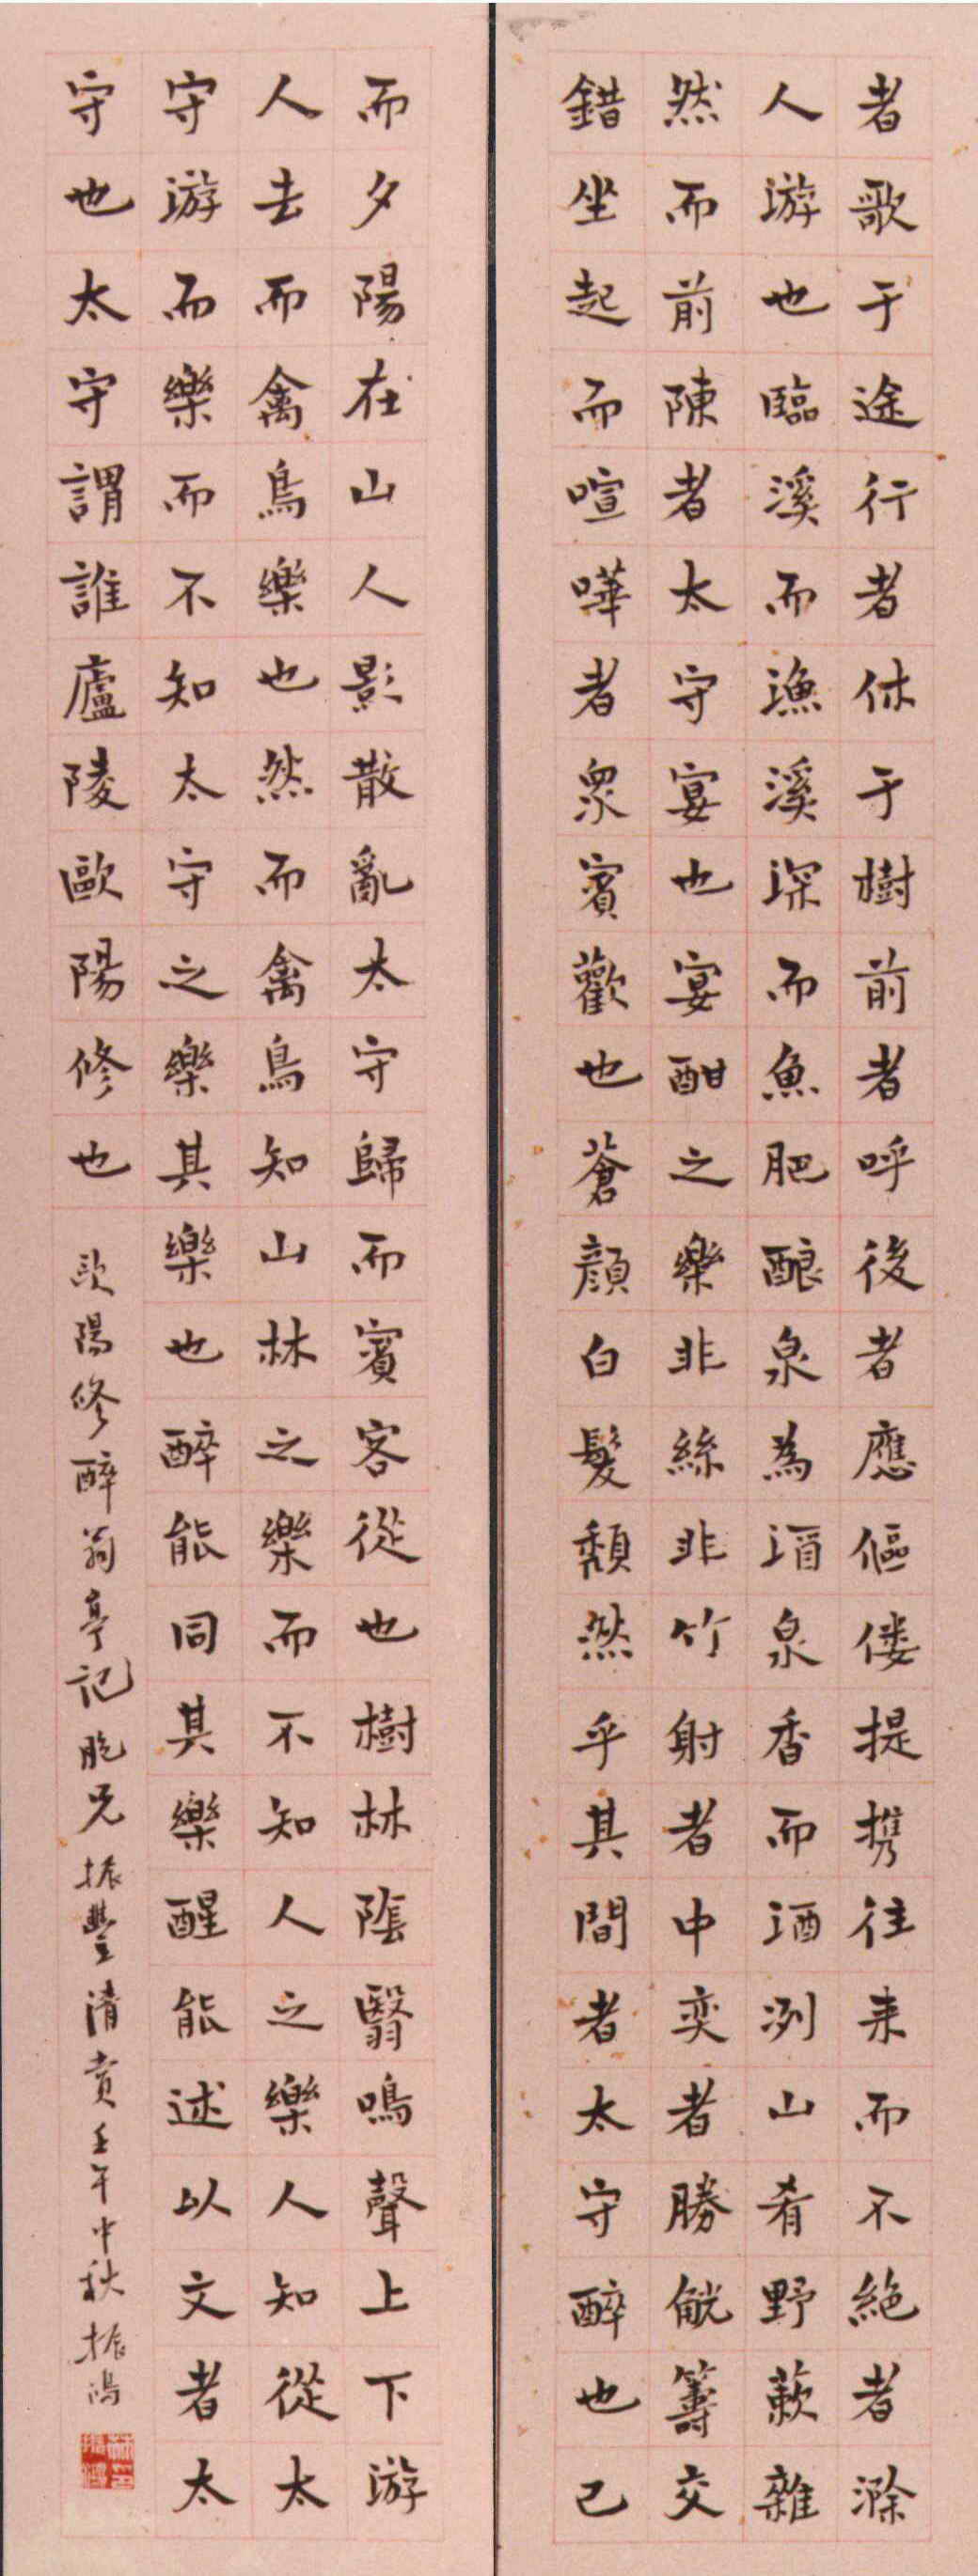 者歌于途行者休于樹前者呼後者應傴僂提携往来而不絶者滁
人游也臨溪而漁溪深而魚肥釀泉為酒泉香而酒洌山肴野蔌雜
然而前陳者太守宴也宴酣之樂非絲非竹射者中奕者勝觥籌交
錯坐起而喧嘩者衆賓歡也蒼顏白髮頹然乎其間者太守醉也已
而夕陽在山人影散亂太守歸而賓客從也樹林陰翳鳴聲上下游
人去而禽鳥樂也然而禽鳥知山林之樂而不知人之樂人知從太
守游而樂而不知太守之樂其樂也醉能同其樂醒能述以文者太
守也太守謂誰廬陵歐陽修也
歐陽修醉翁亭記 胞兄振豐清賞壬午中秋振鴻